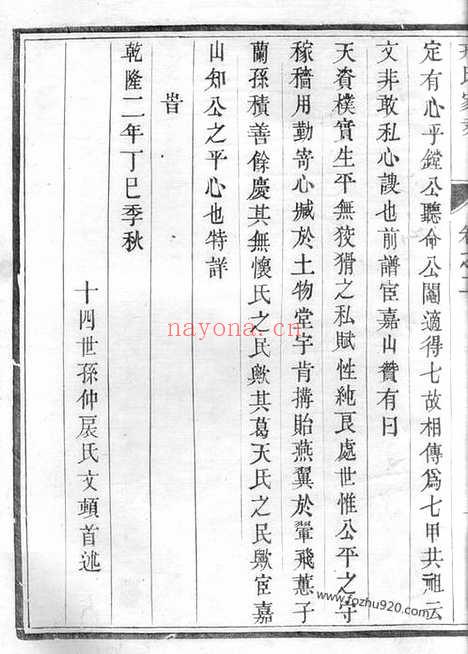 定有心乎鏜公聽命公鬮適得七故相傳爲七甲共祖云
文非敢私心諛也前譜宦嘉山贊有曰
天眷樸實生平無狡猾之私賦性純良處世惟公平之守
稼穡用勤寄心緘於土物堂宇肯搆貽燕翼於翬飛蕙子
蘭孫積善餘慶其無懷氏之民歟其葛天氏之民歟宦嘉
山知公之平心也特詳
旹
乾隆二年丁巳季秋
十四世孫仲房氏文頓首述
nayona.cn
www.fozhu920.com